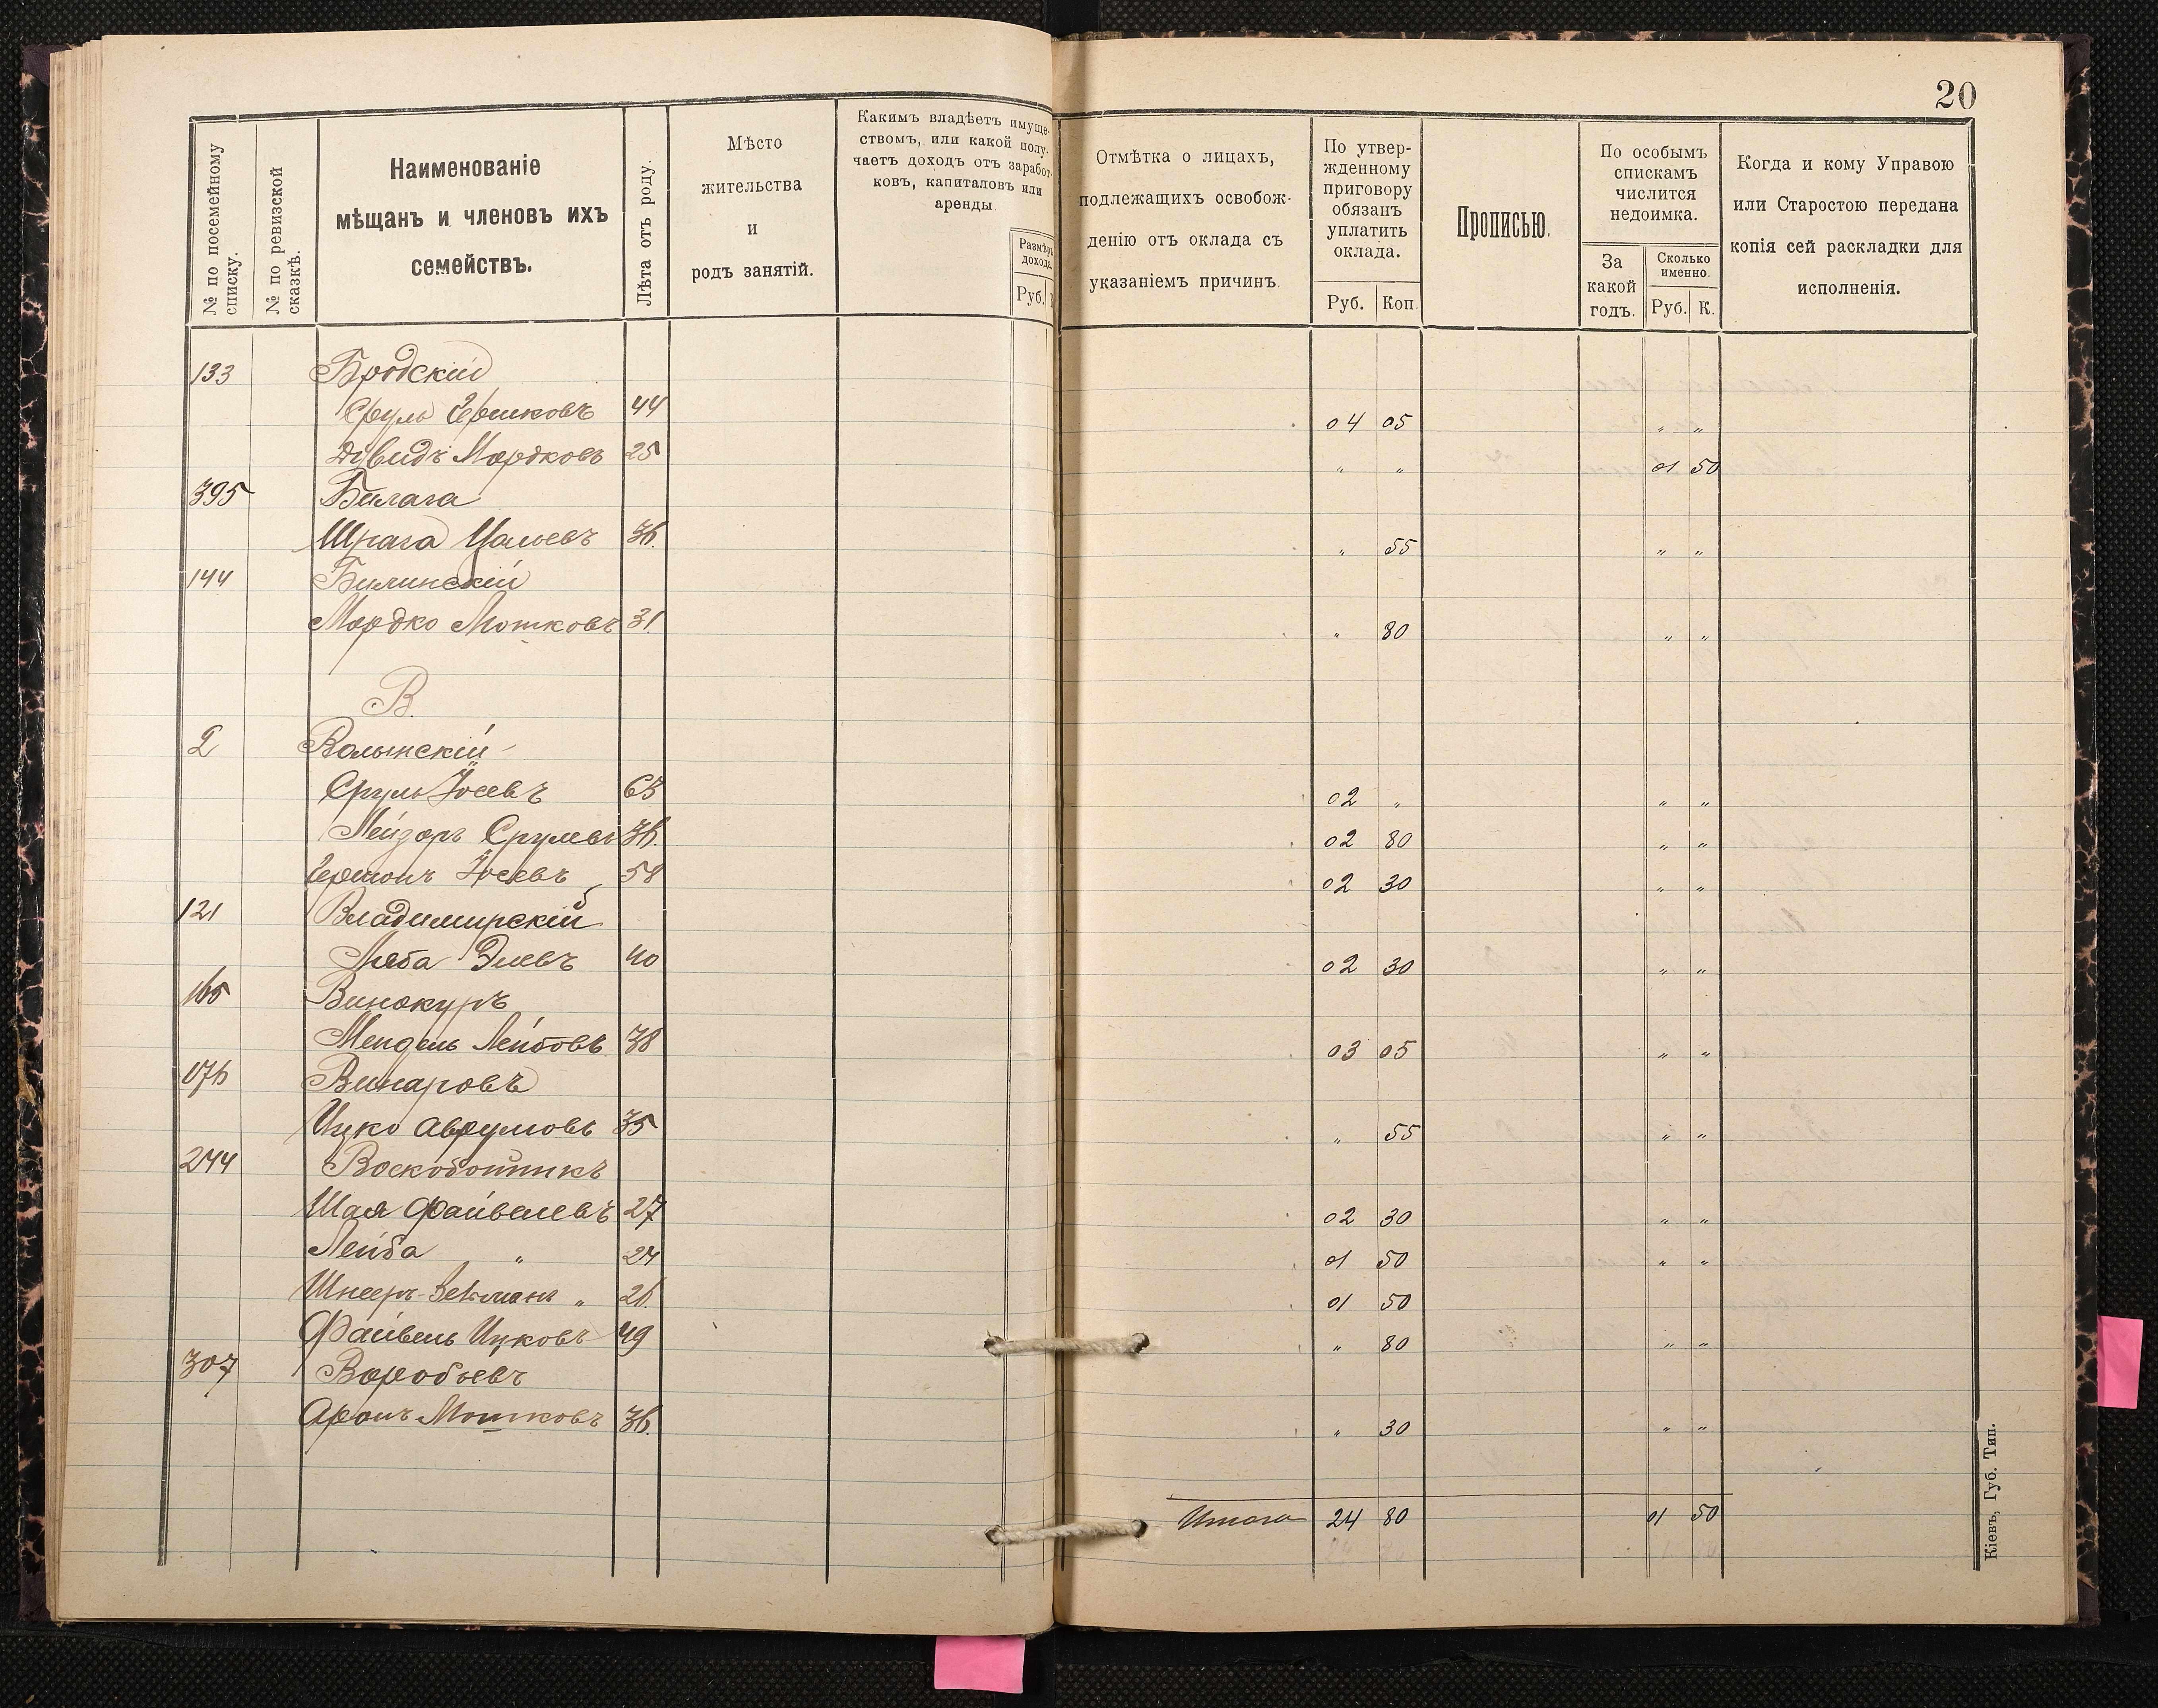 20
№ по посемейному списку.
№ по ревизской сказкѣ.
Наименованіе
мѣщанъ и членовъ ихъ
семействъ.
Лѣта отъ роду.
Мѣсто
жительства
и
родъ занятій.
Какимъ владѣетъ имуще-
ствомъ, или какой полу-
чаетъ доходъ отъ заработ-
ковъ, капиталовъ или
аренды
Размѣръ
дохода
Руб.
Отмѣтка о лицахъ,
подлежащихъ освобож-
денію отъ оклада съ
указаніемъ причинъ.
По утвер-
жденному
приговору
обязанъ
уплатить
оклада.
Руб. Коп.
Прописью.
По особымъ
спискамъ
числится
недоимка.
За
какой
годъ.
Сколько
именно.
Руб. К.
Когда и кому Управою
или Старостою передана
копія сей раскладки для
исполненія.
133 Бродскій
Сруль Гершковъ 44 04 05 " "
Дувидъ Мордковъ 25 " " 01 50
395 Билага
Шрага 36. " 55 " "
144 Билинскій
Мордко Мошковъ 31. " 80 " "
В.
2 Волынскій
Сруль Іосевъ 63 02 " " "
Лейзоръ Срулевъ 36. 02 80 " "
Гершонъ Іосевъ 58 02 30 " "
121 Владимирскій
Лейба Элевъ 40 02 30 " "
165 Винокуръ
Мендель Лейбовъ 38 03 05 " "
176 Винаровъ
Ицко Аврумовъ 35 " 55 " "
244 Воскобойникъ
Шая Файвелевъ 27 02 30 " "
Лейба " 24 01 50 " "
Шнееръ-Зельманъ " 26. 01 50
Файвель Ицковъ 49 " 80 " "
307 Воробьевъ
Аронъ Мошковъ 36. " 30 " "
Итого 24 80 01 50
Кіевъ, Губ. Тип.